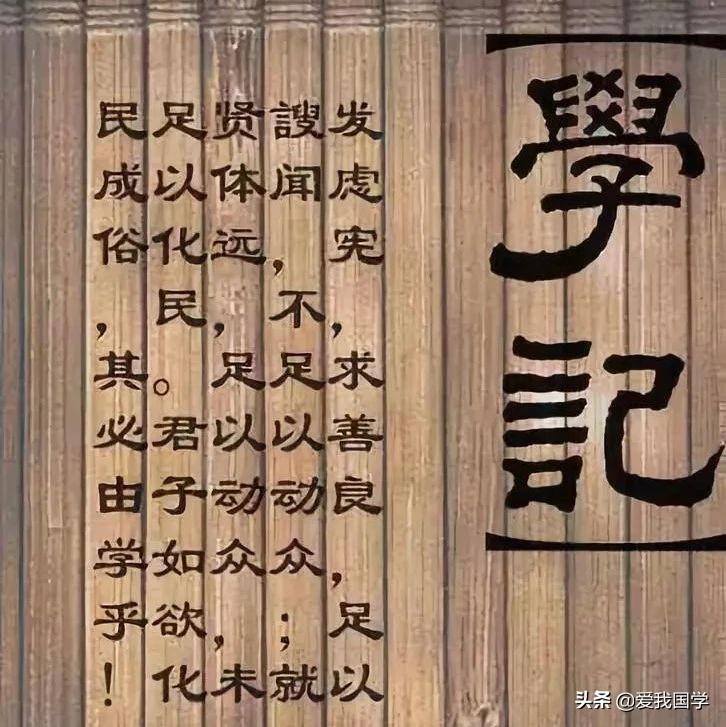 學記
发虑宪，求善良，足以
謏闻，不足以动众；就
贤体远，足以动众，未
足以化民。君子如欲化
民成俗，其必由学乎！
头条 @爱我国学